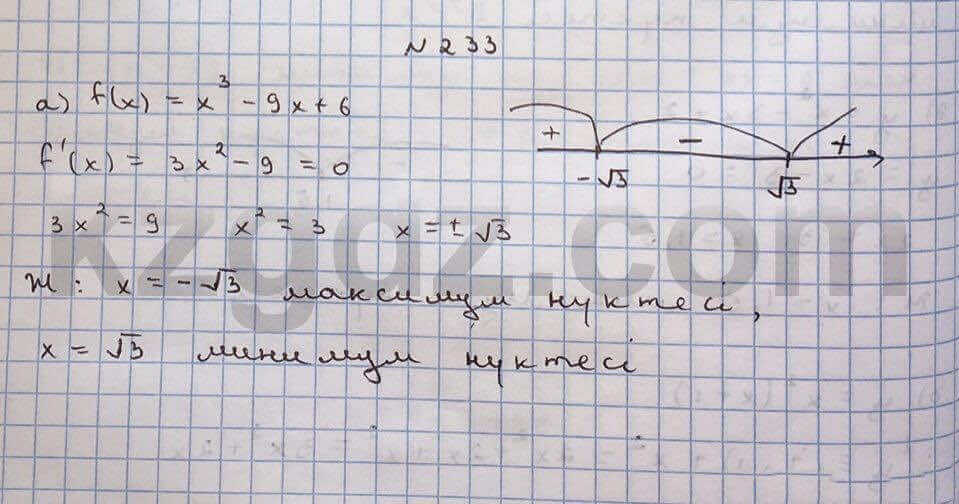 N 233
а) f(x) = x³ - 9x + 6
f'(x) = 3x² - 9 = 0
+ - +
-√3 √3
3x² = 9 x² = 3 x = ± √3
Ж: x = -√3 максимум нүктесі,
x = √3 минимум нүктесі
kzgdz.com